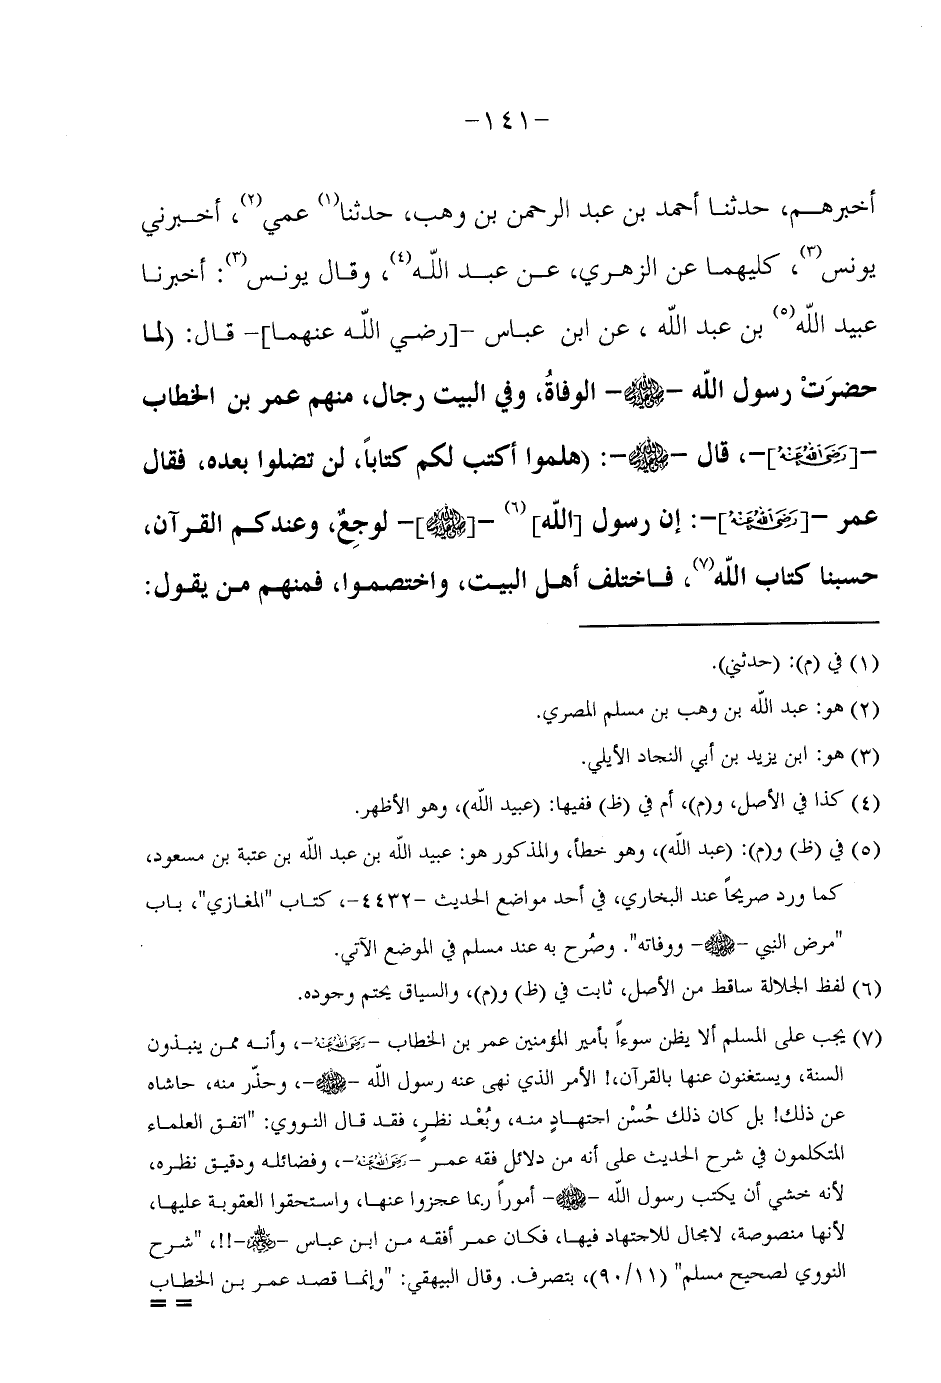 -١٤١-
أخبرهم، حدثنا أحمد بن عبد الرحمن بن وهب، حدثنا(١) عمي(٢)، أخبرني
يونس(٣)، كليهما عن الزهري، عن عبد الله(٤)، وقال يونس(٣): أخبرنا
عبيد الله(٥) بن عبد الله ، عن ابن عباس -[رضي الله عنهما]- قال: (لما
حضرَتْ رسول الله -ﷺ- الوفاةُ، وفي البيت رجال، منهم عمر بن الخطاب
-[رَضِيَ اللهُ عَنْهُ]-، قال -ﷺ-: (هلموا أكتب لكم كتاباً، لن تضلوا بعده، فقال
عمر -[رَضِيَ اللهُ عَنْهُ]-: إن رسول [الله](٦) -[ﷺ]- لوجعٌ، وعندكم القرآن،
حسبنا كتاب الله(٧)، فاختلف أهل البيت، واختصموا، فمنهم من يقول:
(١) في (م): (حدثني).
(٢) هو: عبد الله بن وهب بن مسلم المصري.
(٣) هو: ابن يزيد بن أبي النجاد الأيلي.
(٤) كذا في الأصل، و(م)، أم في (ظ) ففيها: (عبيد الله)، وهو الأظهر.
(٥) في (ظ) و(م): (عبد الله)، وهو خطأ، والمذكور هو: عبيد الله بن عبد الله بن عتبة بن مسعود،
كما ورد صريحاً عند البخاري، في أحد مواضع الحديث -٤٤٣٢-، كتاب "المغازي"، باب
"مرض النبي -ﷺ- ووفاته". وصُرح به عند مسلم في الموضع الآتي.
(٦) لفظ الجلالة ساقط من الأصل، ثابت في (ظ) و(م)، والسياق يحتم وجوده.
(٧) يجب على المسلم ألا يظن سوءاً بأمير المؤمنين عمر بن الخطاب -رَضِيَ اللهُ عَنْهُ-، وأنه ممن ينبذون
السنة، ويستغنون عنها بالقرآن،! الأمر الذي نهى عنه رسول الله -ﷺ-، وحذّر منه، حاشاه
عن ذلك! بل كان ذلك حُسْن اجتهادٍ منه، وبُعْد نظرٍ، فقد قال النووي: "اتفق العلماء
المتكلمون في شرح الحديث على أنه من دلائل فقه عمر -رَضِيَ اللهُ عَنْهُ-، وفضائله ودقيق نظره،
لأنه خشي أن يكتب رسول الله -ﷺ- أموراً ربما عجزوا عنها، واستحقوا العقوبة عليها،
لأنها منصوصة، لامجال للاجتهاد فيها، فكان عمر أفقه من ابن عباس --!!، "شرح
النووي لصحيح مسلم" (٩٠/١١)، بتصرف. وقال البيهقي: "وإنما قصد عمر بن الخطاب
= =